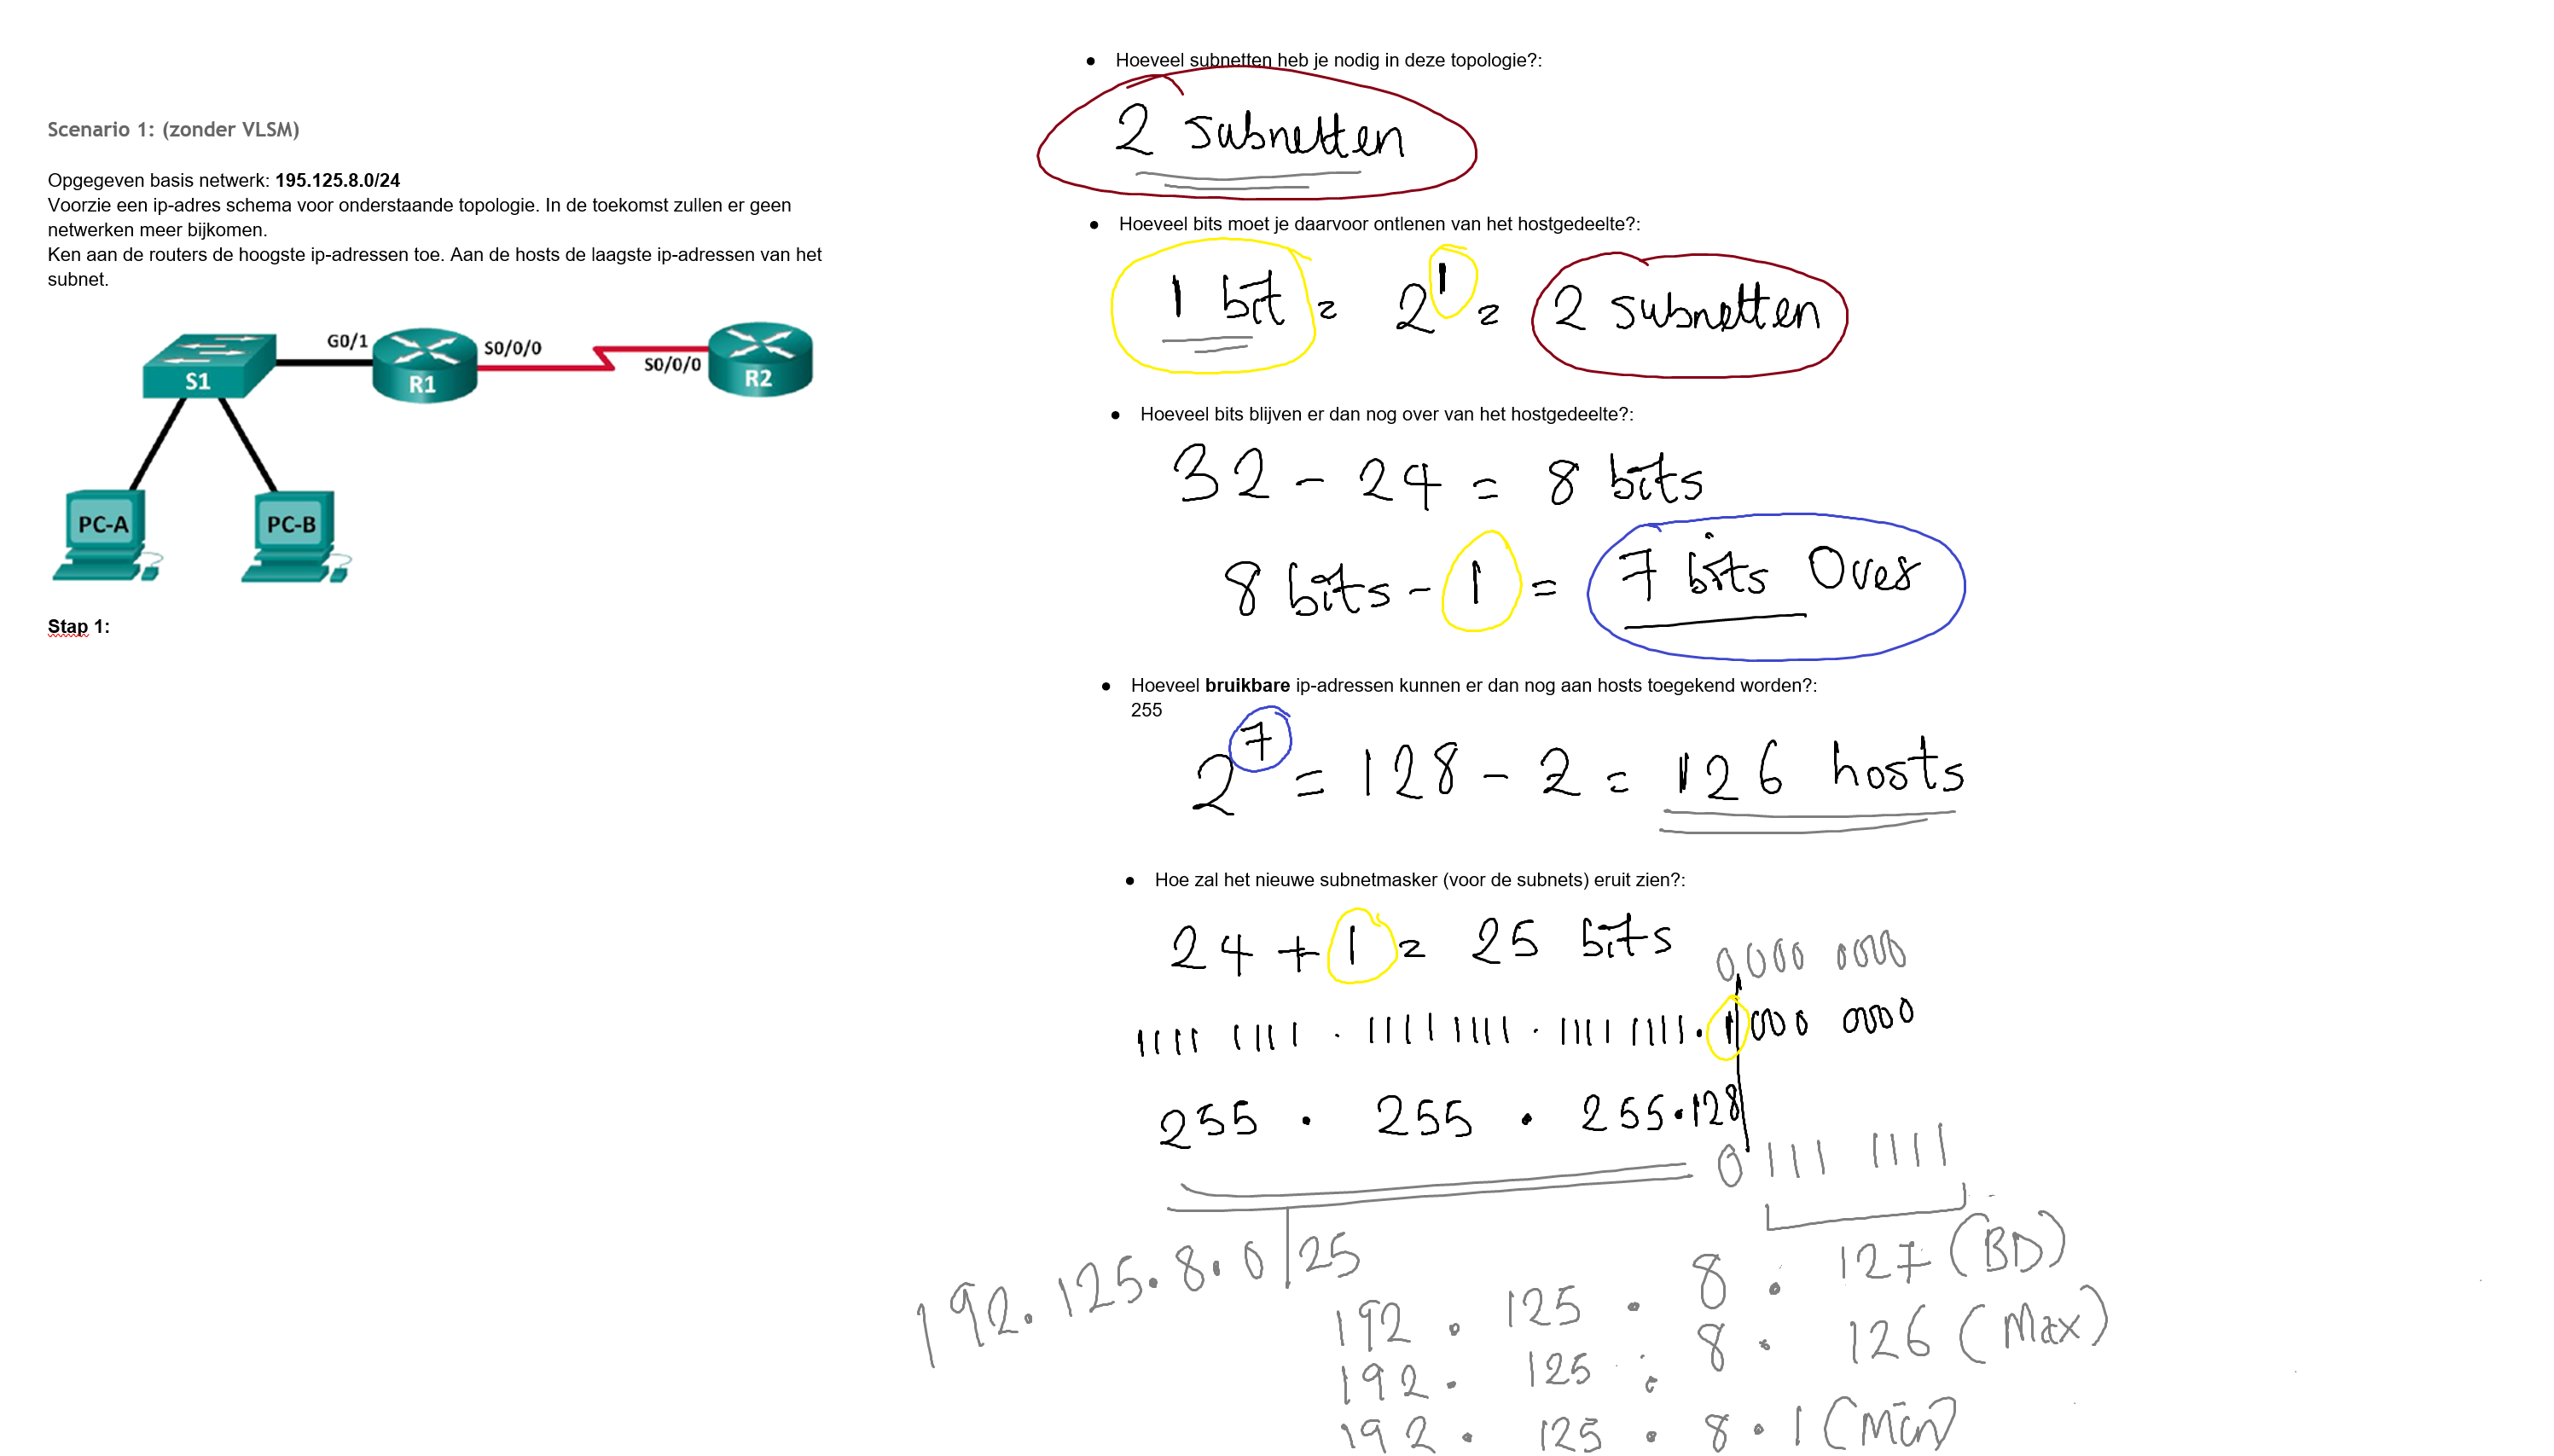 Scenario 1: (zonder VLSM)
Opgegeven basis netwerk: 195.125.8.0/24
Voorzie een ip-adres schema voor onderstaande topologie. In de toekomst zullen er geen
netwerken meer bijkomen.
Ken aan de routers de hoogste ip-adressen toe. Aan de hosts de laagste ip-adressen van het
subnet.
G0/1
S0/0/0
S0/0/0
S1
R1
R2
PC-A
PC-B
Stap 1:
● Hoeveel subnetten heb je nodig in deze topologie?:
2 subnetten
● Hoeveel bits moet je daarvoor ontlenen van het hostgedeelte?:
1 bit = 2^1 = 2 subnetten
● Hoeveel bits blijven er dan nog over van het hostgedeelte?:
32 - 24 = 8 bits
8 bits - 1 = 7 bits Over
● Hoeveel bruikbare ip-adressen kunnen er dan nog aan hosts toegekend worden?:
255
2^7 = 128 - 2 = 126 hosts
● Hoe zal het nieuwe subnetmasker (voor de subnets) eruit zien?:
24 + 1 = 25 bits
0000 0000
1111 1111 . 1111 1111 . 1111 1111 . 1000 0000
255 . 255 . 255 . 128
0111 1111
192.125.8.0/25
192 . 125 . 8 . 127 (BD)
192 . 125 . 8 . 126 (Max)
192 . 125 . 8 . 1 (Min)